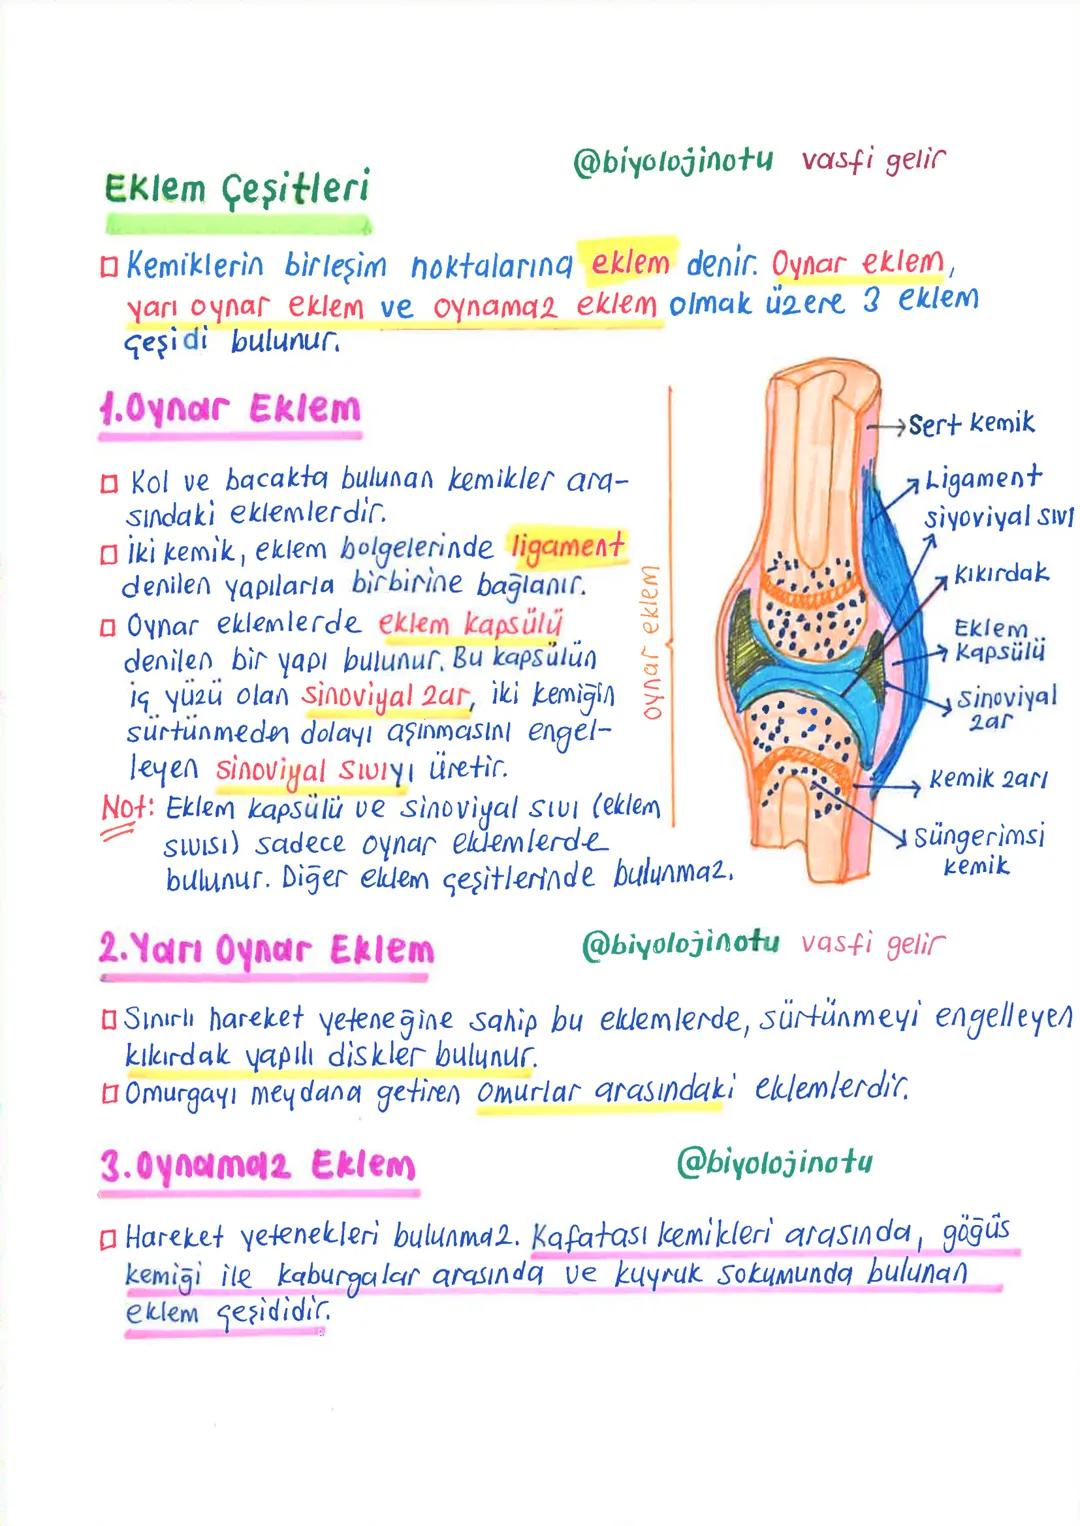 @biyolojinotu vasfi gelir
Eklem Çeşitleri
Kemiklerin birleşim noktalarına eklem denir. Oynar eklem,
yarı oynar eklem ve oynamaz eklem olmak üzere 3 eklem
çeşidi bulunur.
1.Oynar Eklem
Kol ve bacakta bulunan kemikler ara-
sındaki eklemlerdir.
İki kemik, eklem bolgelerinde ligament
denilen yapılarla birbirine bağlanır.
Oynar eklemlerde eklem kapsülü
denilen bir yapı bulunur. Bu kapsülün
iç yüzü olan sinoviyal zar, iki kemiğin
sürtünmeden dolayı aşınmasını engel-
leyen sinoviyal sıvıyı üretir.
Not: Eklem kapsülü ve sinoviyal sıvı (eklem
sıvısı) sadece oynar eklemlerde
bulunur. Diğer eklem çeşitlerinde bulunmaz.
oynar eklem
Sert kemik
Ligament
siyoviyal sıvı
Kıkırdak
Eklem
Kapsülü
Sinoviyal
zar
Kemik zarı
Süngerimsi
kemik
2.Yarı Oynar Eklem
@biyolojinotu vasfi gelir
Sınırlı hareket yeteneğine sahip bu eklemlerde, sürtünmeyi engelleyen
kıkırdak yapılı diskler bulunur.
Omurgayı meydana getiren omurlar arasındaki eklemlerdir.
3.Oynamaz Eklem
@biyolojinotu
Hareket yetenekleri bulunmaz. Kafatası kemikleri arasında, göğüs
kemiği ile kaburgalar arasında ve kuyruk sokumunda bulunan
eklem çeşididir.